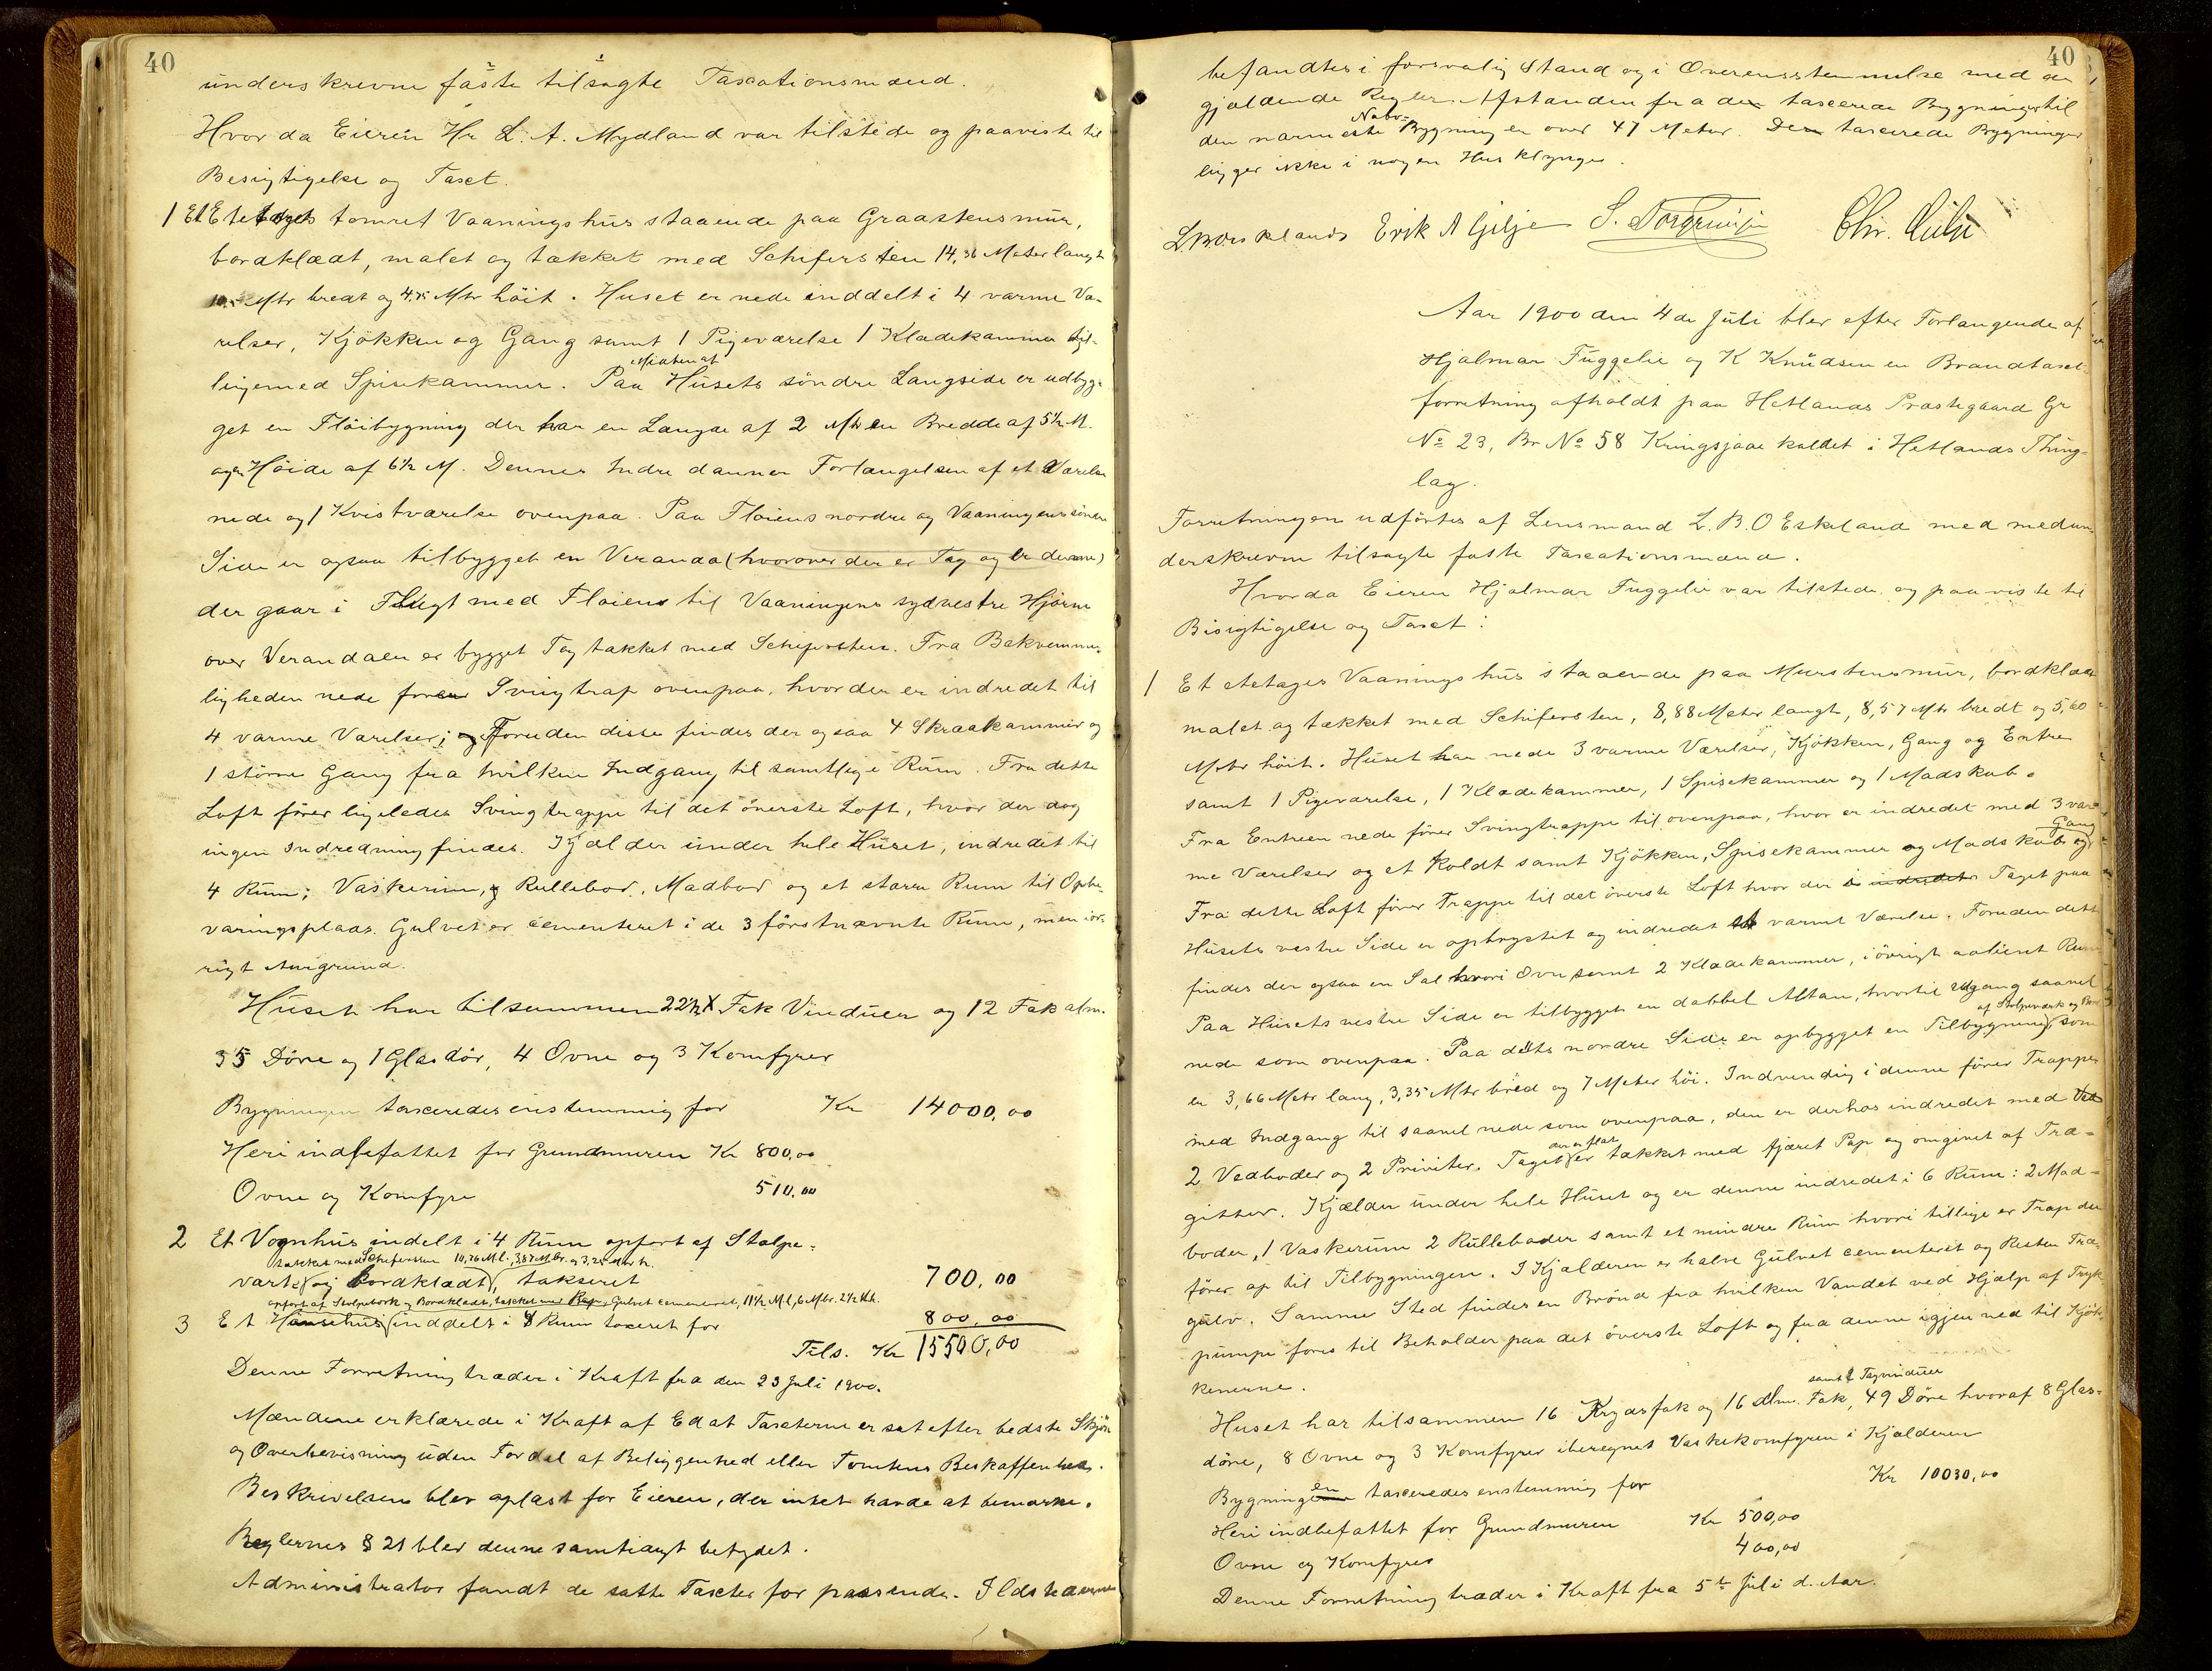 40
underskrevne faste tilsagte Taxationsmænd.
Hvor da Eieren Hr L. A. Mydland var tilstede og paaviste til
Besigtigelse og Taxt.
1 Et Etetages tømret Vaaningshus staaende paa Graastensmur,
bordklædt, malet og tækket med Schifersten 14,36 Meter langt
Mtr bredt og 4,75 Mtr höit. Huset er nede inddelt i 4 varme Væ-
relser, Kjökken og Gang samt 1 Pigeværelse 1 Klædekammer til-
ligemed Spisekammer. Paa Midten af Husets söndre Langside er udbyg-
get en Flöibygning der har en Længde af 2 Mtr en Bredde af 5½ M.
og en Höide af 6½ M. Dennes Indre danner Forlængelsen af et Værelse
nede og 1 Kvistværelse ovenpaa. Paa Flöiens nordre og Vaaningens söndre
Side er ogsaa tilbygget en Veranda (hvorover der er Tag og er denne)
der gaar i Flugt med Flöiens til Vaaningens sydvestre Hjörne
over Verandaen er bygget Tag tækket med Schifersten. Fra Bekvemme-
ligheden nede förer Svingtrap ovenpaa, hvor der er indredet til
4 varme Værelser; Foruden disse findes der ogsaa 4 Skraakammer og
1 större Gang fra hvilken Indgang til samtlige Rum. Fra dette
Loft förer ligeledes Svingtrappe til det överste Loft, hvor der dog
ingen Indredning findes. Kjælder under hele Huset, indredet til
4 Rum; Vaskerum, Rullebod, Madbod og et större Rum til Opbe-
varingsplads. Gulvet er cementeret i de 3 förstnævnte Rum, men iöv-
rigt Aurgrund.
Huset har tilsammen 22½ X Fak Vinduer og 12 Fak alm.
35 Döre og 1 Glasdör, 4 Ovne og 3 Komfyrer
Bygningen taxeredes enstemmig for Kr 14000,00
Heri indbefattet for Grundmuren Kr 800,00
Ovne og Komfyre 510,00
2 Et Vognhus indelt i 4 Rum opfört af Stolpe-
tækket med Schifersten 10,76 M l., 3,87 M br. og 3,25 Mtr h.
værk og bordklædt, takseret 700,00
opfört af Stolpeværk og Bordklædt, tækket med Pap, Gulvet cementeret, 11½ M l, 6 M br. 2½ M h.
3 Et Hönsehus inddelt i 8 Rum taxeret for 800,00
Tils. Kr 15500,00
Denne Forretning træder i Kraft fra den 23 Juli 1900.
Mændene erklærede i Kraft af Ed at Taxterne er sat efter bedste Skjön
og Overbevisning uden Fordel af Beliggenhed eller Tomtens Beskaffenhed.
Beskrivelsen blev oplæst for Eieren, der intet havde at bemærke.
Reglernes § 21 blev denne samtidigt betydet.
Administrator fandt de satte Taxter for passende. Ildstederne
40
befandtes i forsvarlig Stand og i Overensstemmelse med de
gjældende Regler. Afstanden fra den taxerede Bygninger til
den nærmeste Nabo-Bygning er over 47 Meter. De taxerede Bygninger
ligger ikke i nogen Husklynge.
Erik A Gilje S. Torgersen Chr.
Aar 1900 den 4de Juli blev efter Forlangende af
Hjalmar Fuggelie og K Knudsen en Brandtaxt-
forretning afholdt paa Hetlands Præstegaard Gr
No 23, Br No 58 Kringsjaae kaldet i Hetlands Thing-
lag.
Forretningen udförtes af Lensmand L. B. O Eskeland med medun-
derskrevne tilsagte faste Taxationsmænd.
Hvor da Eieren Hjalmar Fuggelie var tilstede og paaviste til
Besigtigelse og Taxt:
1 Et etetages Vaaningshus staaende paa Murstensmur, bordklædt
malet og tækket med Schifersten, 8,88 Meter langt, 8,57 Mtr bredt og 5,60
Meter höit. Huset har nede 3 varme Værelser, Kjökken, Gang og Entre
samt 1 Pigeværelse, 1 Klædekammer, 1 Spisekammer og 1 Madskab.
Fra Entreen nede förer Svingtrappe til ovenpaa, hvor er indredet med 3 var-
me Værelser og et koldt samt Kjökken, Spisekammer og Madskab og Gang
Fra dette Loft förer Trappe til det överste Loft hvor der er indredet Taget paa
Husets vestre Side er opbrystet og indredet et varmt Værelse. Foruden dette
findes der ogsaa en Sal hvori Ovn samt 2 Klædekammer, iövrigt aabent Rum
Paa Husets vestre Side er tilbygget en dobbel Altan, hvortil Udgang saavel
nede som ovenpaa. Paa dets nordre Side er opbygget en Tilbygning af Stolpeværk og som
er 3,66 Metr lang, 3,35 Mtr bred og 7 Meter höi. Indvendig i denne förer Trappe
med Indgang til saavel nede som ovenpaa, den er derhos indredet med
2 Vedboder og 2 Priviter. Taget der er flat er tækket med tjæret Pap og omgivet af Træ-
gitter. Kjælder under hele Huset og er denne indredet i 6 Rum: 2 Mad-
boder, 1 Vaskerum 2 Rulleboder samt et mindre Rum hvori tillige er Trap der
förer op til Tilbygningen. I Kjælderen er halve Gulvet cementeret og Resten Træ-
gulv. Samme Sted findes en Brönd fra hvilken Vandet ved Hjælp af Tryk-
pumpe föres til Beholder paa det överste Loft og fra denne igjen ned til Kjök-
kenerne.
Huset har tilsammen 16 Krydsfak og 16 alm. Fak, samt Tagvinduer 49 Döre hvoraf 8 Glas-
döre, 8 Ovne og 3 Komfyrer iberegnet Vaskekomfyren i Kjælderen
Bygningen taxeredes enstemmig for Kr 10030,00
Heri indbefattet for Grundmuren Kr 500,00
Ovne og Komfyrer 400,00
Denne Forretning træder i Kraft fra 5te Juli d. Aar.